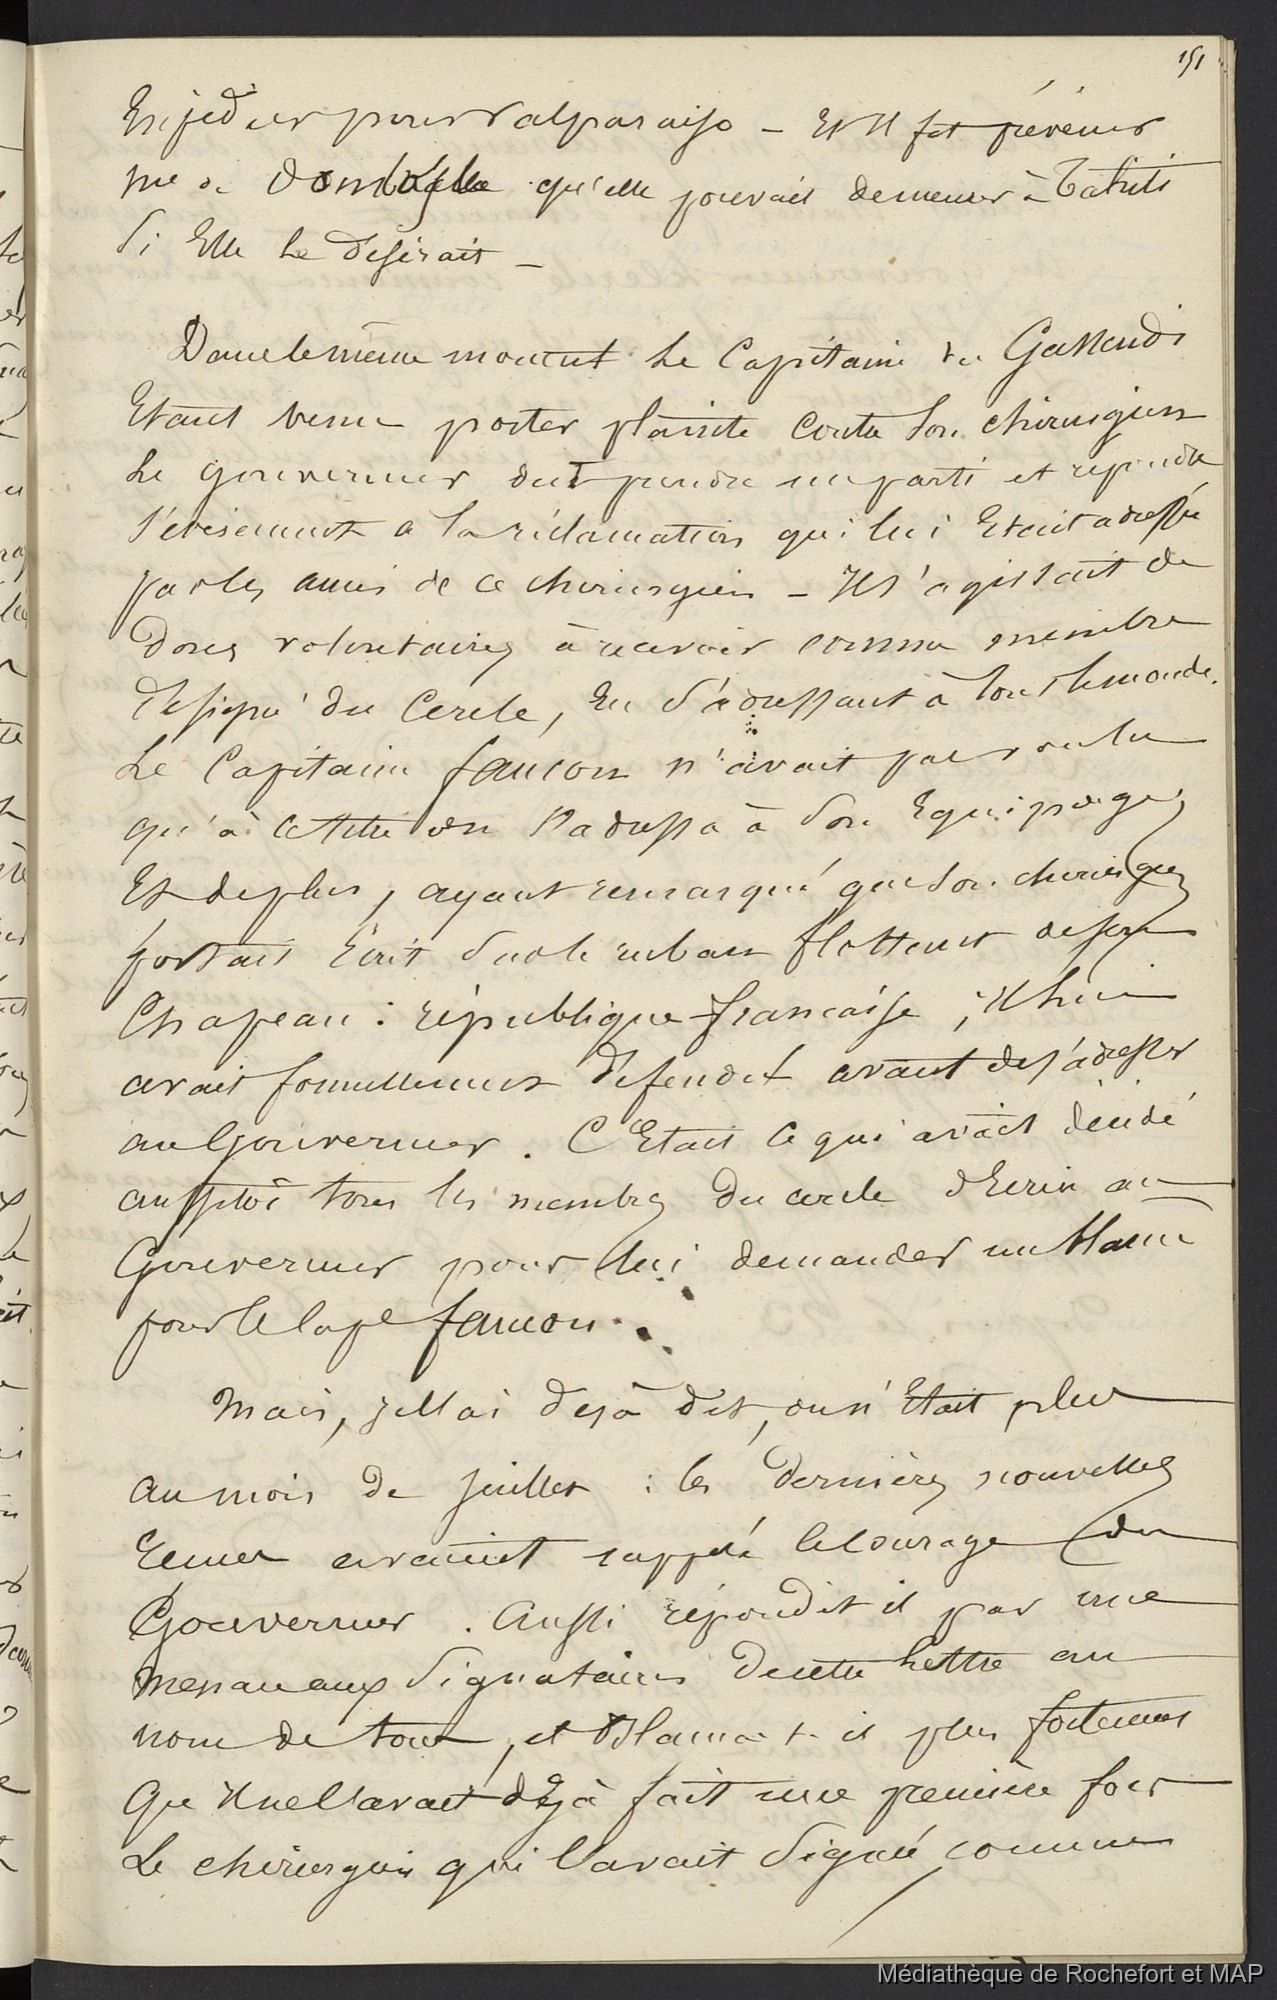 151
Expédier pour Valparaiso – Et Il fit prévenir
me de qu'elle pouvait demeurer à Tahiti
Si Elle le désirait –
Dans le même moment le Capitaine du Gassendi
Etant venu porter plainte contre son chirurgien
Le gouverneur dut prendre un parti et répondre
à la réclamation qui lui Etait adressée
par les amis de ce chirurgien – Il s'agissait de
Dons volontaires à recevoir comme membre
désigné du Cercle, En s'adressant à tout le monde.
Le Capitaine faucon n'avait pas voulu
qu'à ce titre on s'adressa à son Equipage,
Et de plus, ayant remarqué que son chirurgien
portait écrit sur le ruban flottant de son
Chapeau : république francaise ; Il lui
avait formellement défendu avant de s'adresser
au Gouverneur. C'Etait ce qui avait décidé
aussitôt tous les membres du cercle d'Ecrire au
Gouverneur pour lui demander un blame
pour le cape faucon.
Mais, je l'ai déjà dit, on n'Etait plus
au mois de Juillet : les dernières nouvelles
avaient le courage du
Gouverneur. Aussi répondit il par une
menace aux signataires de cette lettre au
nom de tous, et blama-t-il plus fortement
Que Il ne l'avait déjà fait une première fois
Le chirurgien qui l'avait signée comme
Médiathèque de Rochefort et MAP